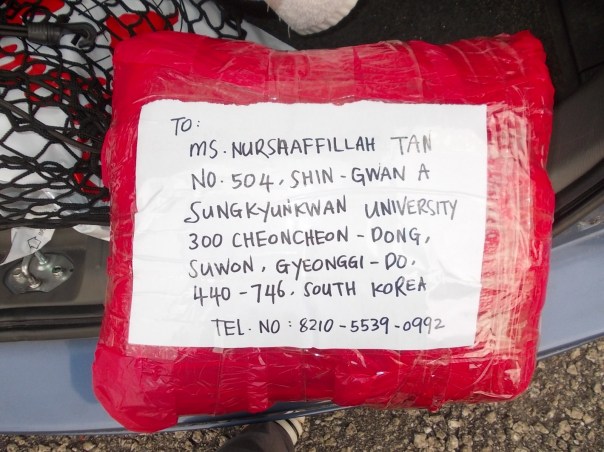 TO:
MS. NURSHAFFILLAH TAN
NO. 504, SHIN-GWAN A
SUNGKYUNKWAN UNIVERSITY
300 CHEONCHEON-DONG,
SUWON, GYEONGGI-DO.
440-746. SOUTH KOREA
TEL. NO: 8210-5539-0992